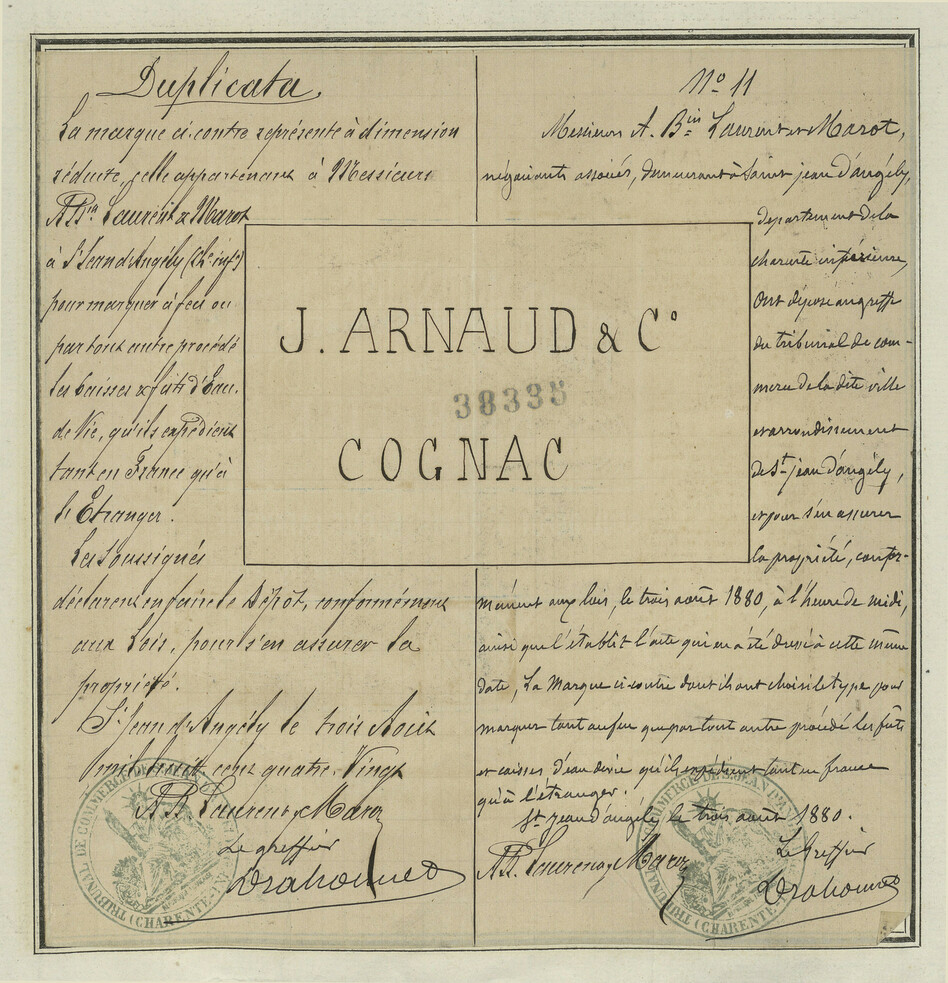 Duplicata.
La marque ci contre représente à dimension
réduite, celle appartenant à Messieurs
Laurent & Marot
à St Jean d'Angély (Ch.te inf.re)
pour marquer à feu ou
par tout autre procédé
les Caisses & fûts d'Eau.
de Vie, qu'ils expédient
tant en France qu'à
l'Etranger.
Les Soussignés
déclarent en faire le Dépôt, conformément
aux Lois, pour s'en assurer la
propriété.
St Jean d'Angély le trois Août
mil huit cent quatre. Vingt
Laurent & Marot
Le greffier
J. ARNAUD & Co
38335
COGNAC
No 11
Messieurs A. Bin Laurent et Marot,
négociants associés, demeurant à Saint jean d'angély,
département de la
charente inférieure,
Ont déposé au greffe
du tribunal de com-
merce de la dite ville
et arrondissement
de St jean d'angély,
et pour s'en assurer
la propriété, confor-
mément aux lois, le trois août 1880, à l'heure de midi,
ainsi que l'établit l'acte qui en a été dressé à cette même
date, La Marque ci contre dont ils ont choisi le type pour
marquer tant au feu que par tout autre procédé les fûts
et caisses d'eau de vie qu'ils expédient tant en france
qu'à l'étranger.
St jean d'angély le trois août 1880.
Laurent & Marot
Le Greffier
TRIBUNAL DE COMMERCE DE ST JEAN D'ANGELY
(CHARENTE-INF
TRIBUNAL DE COMMERCE DE ST JEAN D'ANGELY
(CHARENTE-INF